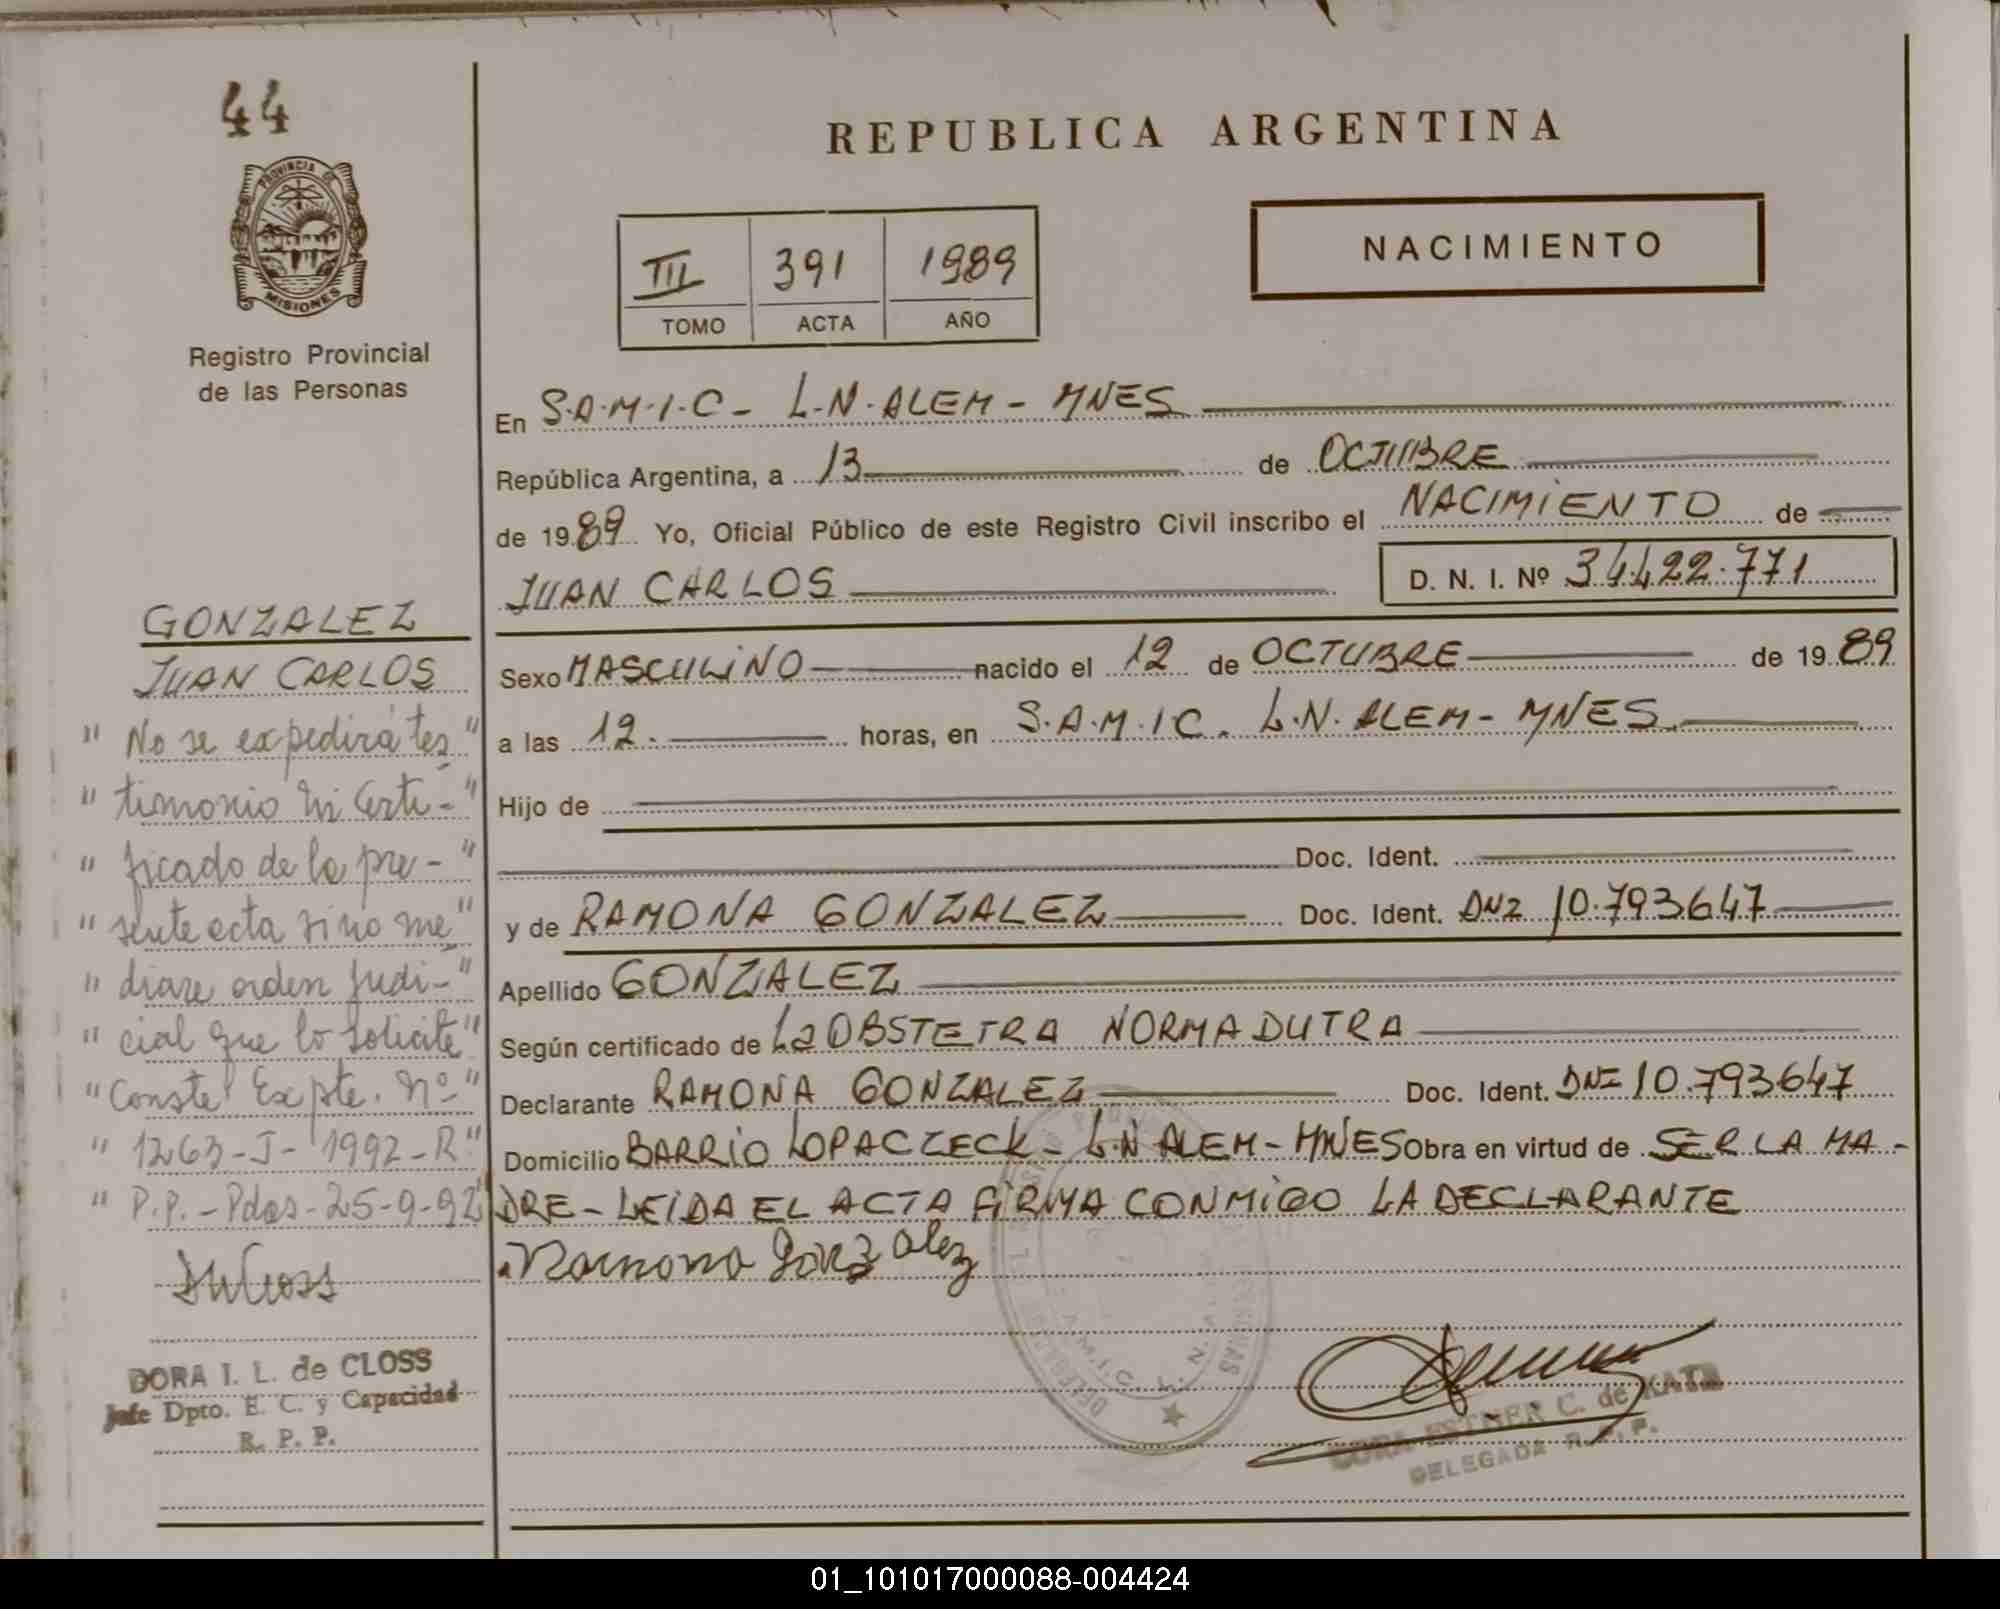 44
PROVINCIA DE
MISIONES
Registro Provincial
de las Personas
REPUBLICA ARGENTINA
NACIMIENTO
III 391 1989
TOMO ACTA AÑO
En S.A.M.I.C - L.N. ALEM - MNES
República Argentina, a 13 de OCTUBRE
de 1989 Yo, Oficial Público de este Registro Civil inscribo el NACIMIENTO de
JUAN CARLOS D. N. I. Nº 34.422.771
Sexo MASCULINO nacido el 12 de OCTUBRE de 1989
a las 12. horas, en S.A.M.I.C. L.N. ALEM - MNES
Hijo de
Doc. Ident.
y de RAMONA GONZALEZ Doc. Ident. DNI 10.793647
Apellido GONZALEZ
Según certificado de La OBSTETRA NORMA DUTRA
Declarante RAMONA GONZALEZ Doc. Ident. DNI 10.793647
Domicilio BARRIO LOPACZECK - L.N ALEM - MNES Obra en virtud de SER LA MA-
DRE - LEIDA EL ACTA FIRMA CONMIGO LA DECLARANTE
Ramona Gonzalez
ESTHER C. de KATZ
DELEGADA R. P. P.
GONZALEZ
JUAN CARLOS
" No se expedirá tes "
" timonio ni Certi- "
" ficado de la pre- "
" sente acta si no me "
" diare orden Judi- "
" cial que lo solicite "
" Conste Expte. Nº "
" 1263-J-1992-R "
" P.P.-Pdas-25-9-92 "
DORA I. L. de CLOSS
Jefe Dpto. E. C. y Capacidad
R. P. P.
01_101017000088-004424